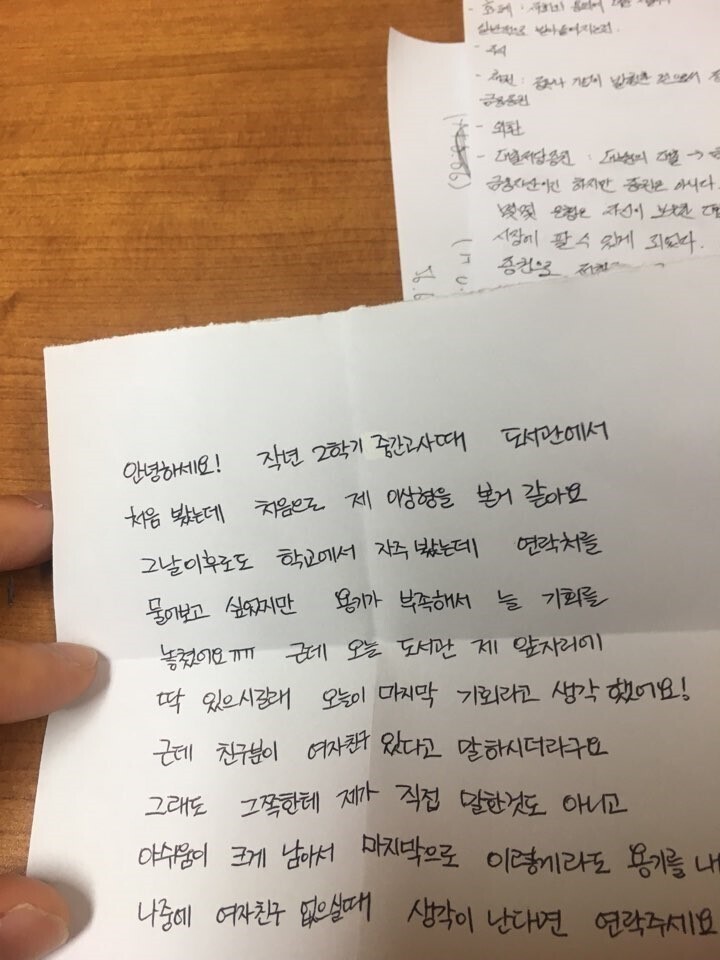 일반적으로
- 주식
금융증권
- 외환
금융자산이긴 하지만 증권은 아니다.
몇몇 은행은 자신이 보유한
시장에 팔 수 있게 되었다.
증권으로
안녕하세요! 작년 2학기 중간고사때 도서관에서
처음 봤는데 처음으로 제 이상형을 본거 같아요
그날이후로도 학교에서 자주 봤는데 연락처를
물어보고 싶었지만 용기가 부족해서 늘 기회를
놓쳤어요ㅠㅠ 근데 오늘 도서관 제 앞자리에
딱 있으시길래 오늘이 마지막 기회라고 생각 했어요!
근데 친구분이 여자친구 있다고 말하시더라구요
그래도 그쪽한테 제가 직접 말한것도 아니고
아쉬움이 크게 남아서 마지막으로 이렇게라도 용기를 내
나중에 여자친구 없으실때 생각이 난다면 연락주세요